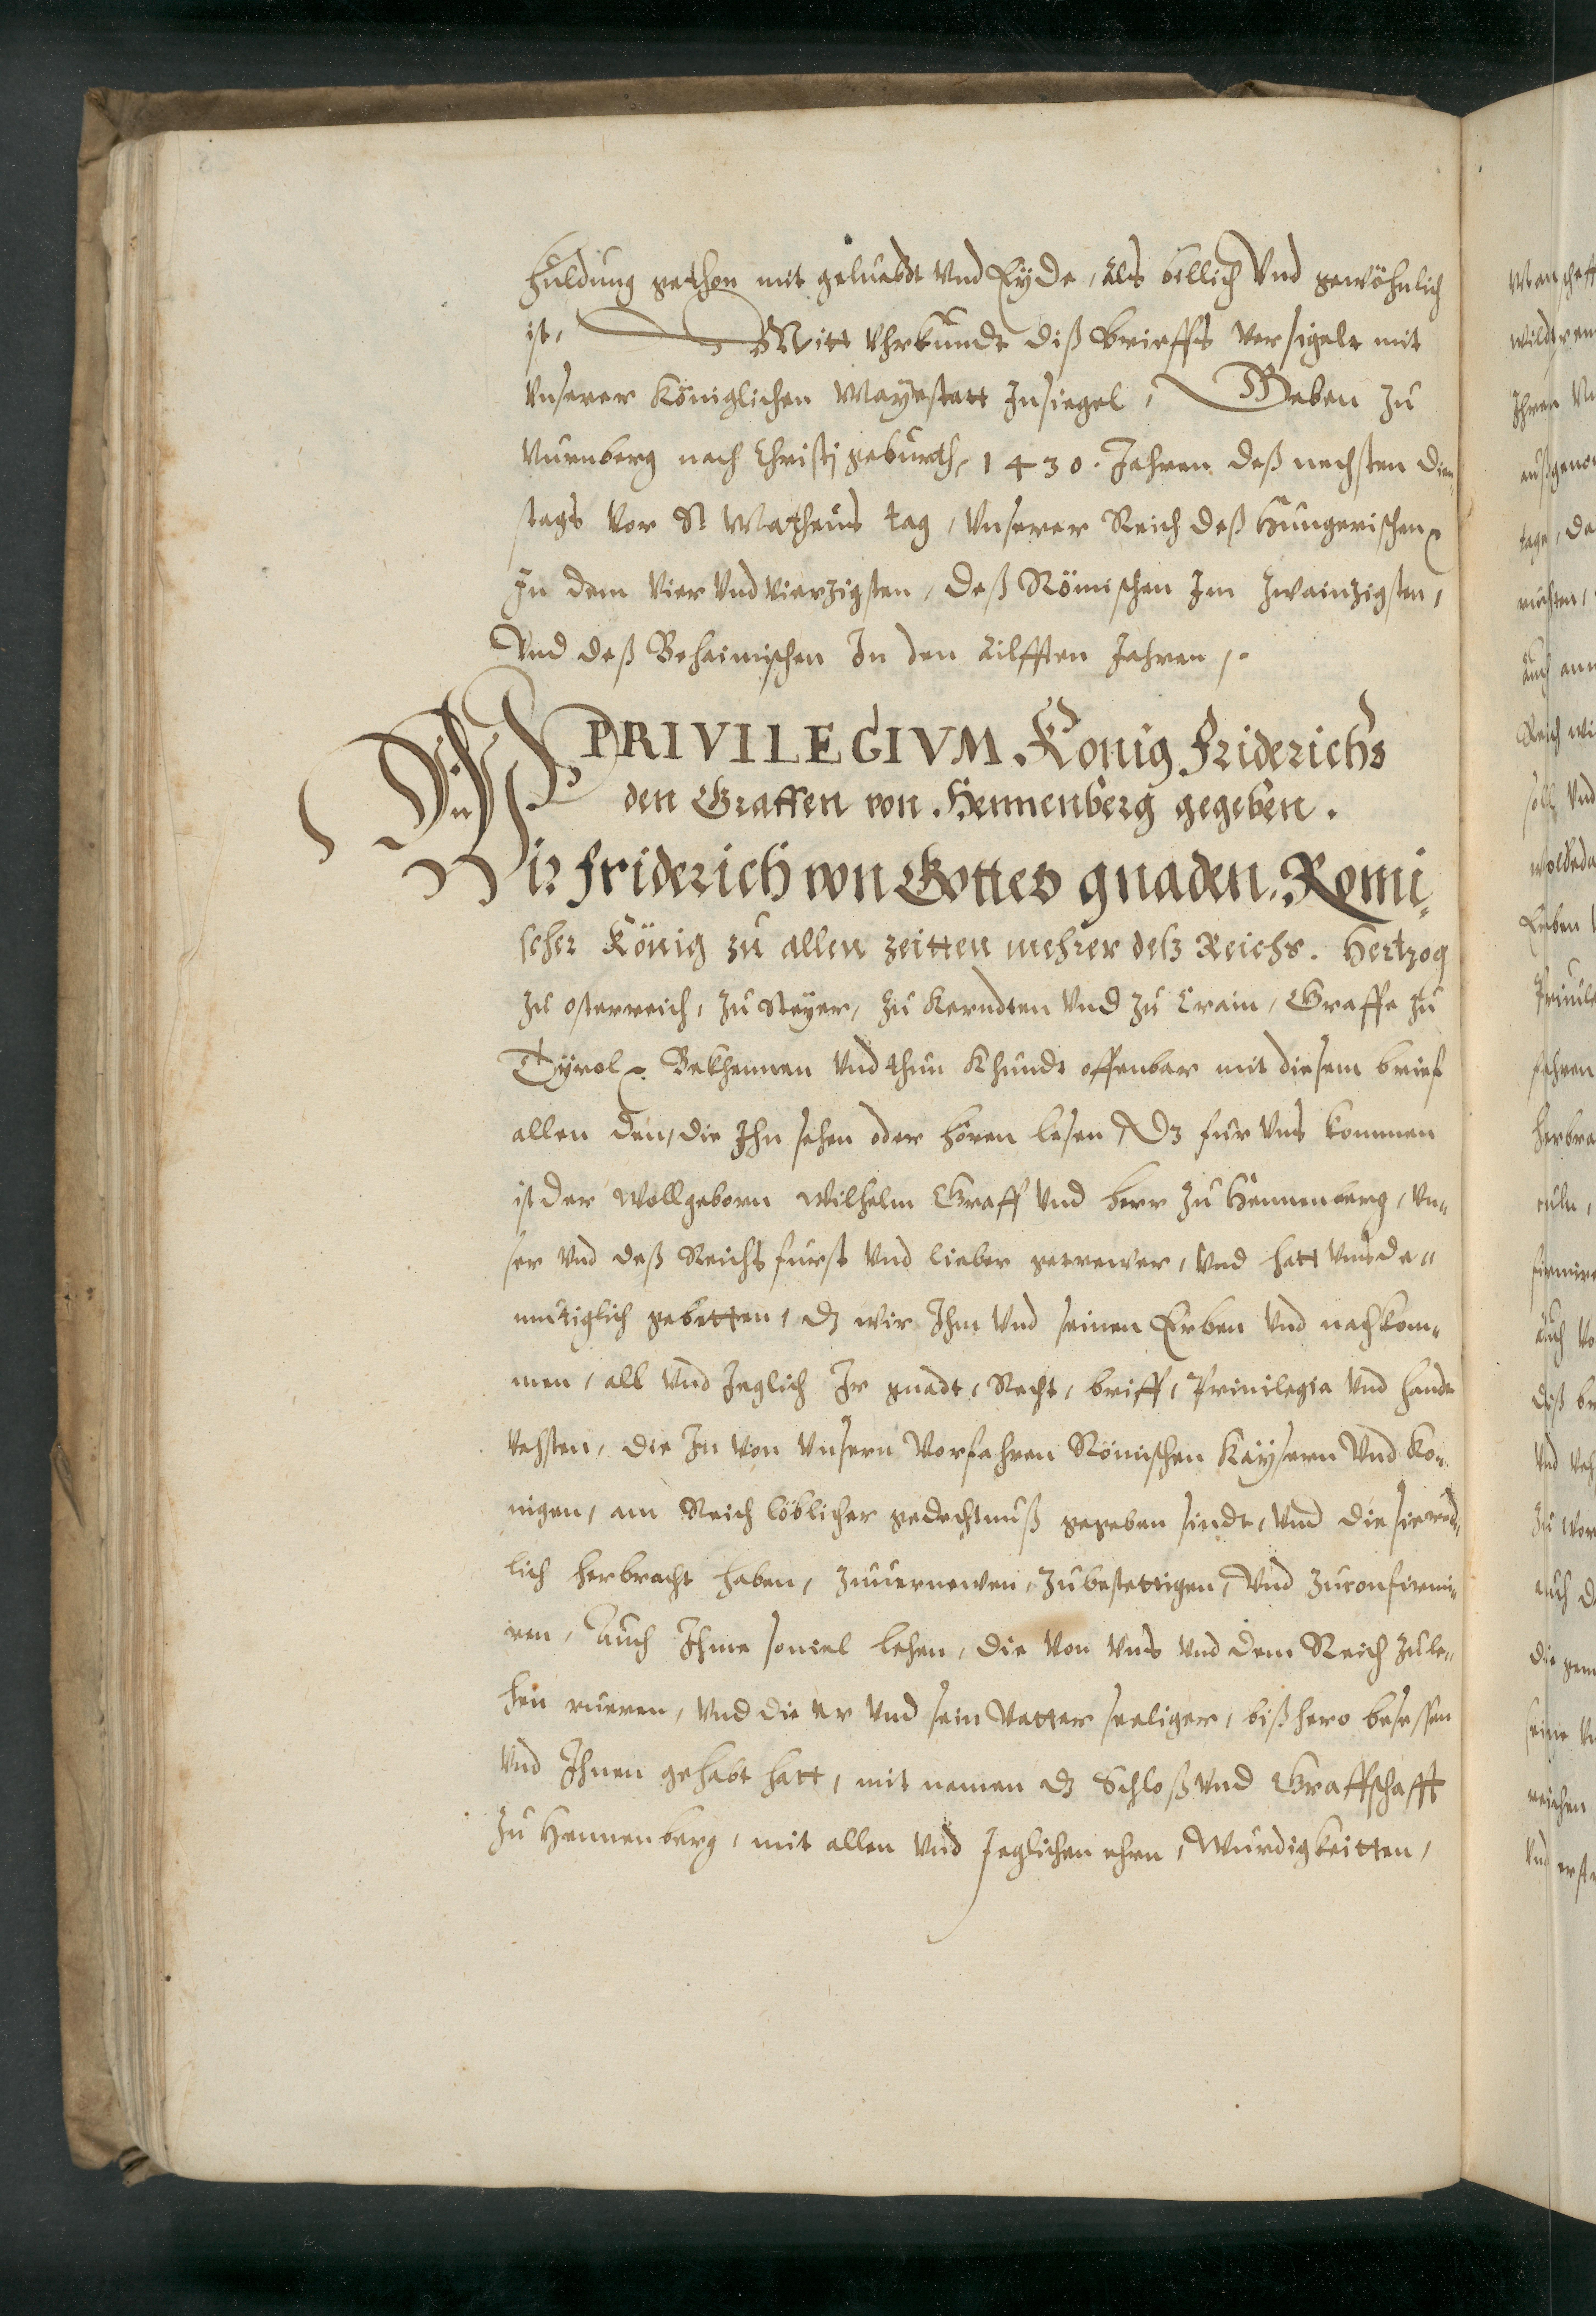 huldung gethon mit geluebdt vnd Eyde, als billich vnd gewöhnlich
ist, Mitt Vhrkundt diß brieffs versigelt mit
Vnserer Königlichen Mayestatt Insiegel, Geben zu
Nurnberg nach Christi geburth, 1430. Jahren deß nechsten Dien-
stags vor St Matheus tag, Vnserer Reich deß Hungerischen
In dem Vier vnd vierzigsten, deß Römischen Im zwainzigsten,
Vnd deß Beheimischen In den ailfften Jahren,
PRIVILEGIVM König Friderichs
den Graffen von Hennenberg gegeben.
Wir Friderich von Gottes gnaden Romi-
scher König zu allen zeitten mehrer deß Reichs. Hertzog
zu osterreich, zu Steyer, zu Kerndten vnd zu Crain, Graffe zu
Tyrol, Bekhennen vnd thun Khundt offenbar mit diesem brief
allen den, die Ihn sehen oder hören lesen, Dz fur vns kommen
ist der wollgeborn Wilhelm Graff vnd herr zu Hennenberg, vn-
ser vnd deß Reichs furst vnd lieber getrewer, vnd hatt vns de-
mutiglich gebetten, dz wir Ihm vnd seinen Erben vnd nachkom-
men, all vnd Jeglich Ir gnadt, Recht, briff, Priuilegia vnd handt
vehsten, die In von Vnsern Vorfahren Römischen Kaysern Vnd Ko-
nigen, am Reich löblicher gedechtnuß gegeben sindt, vnd die sie red-
lich herbracht haben, zuuernewen, zubestettigen, Vnd zuconfirmi-
ren, Auch Ihme souiel lehen, die von vns vnd dem Reich zu le-
hen rueren, vnd die er vnd sein Vatter seeliger, bißhero besessen
vnd Ihnen gehabt hatt, mit namen dz Schloß vnd Graffschafft
zu Hennenberg, mit allen vnd Jeglichen ehren, Wurdigkeitten,